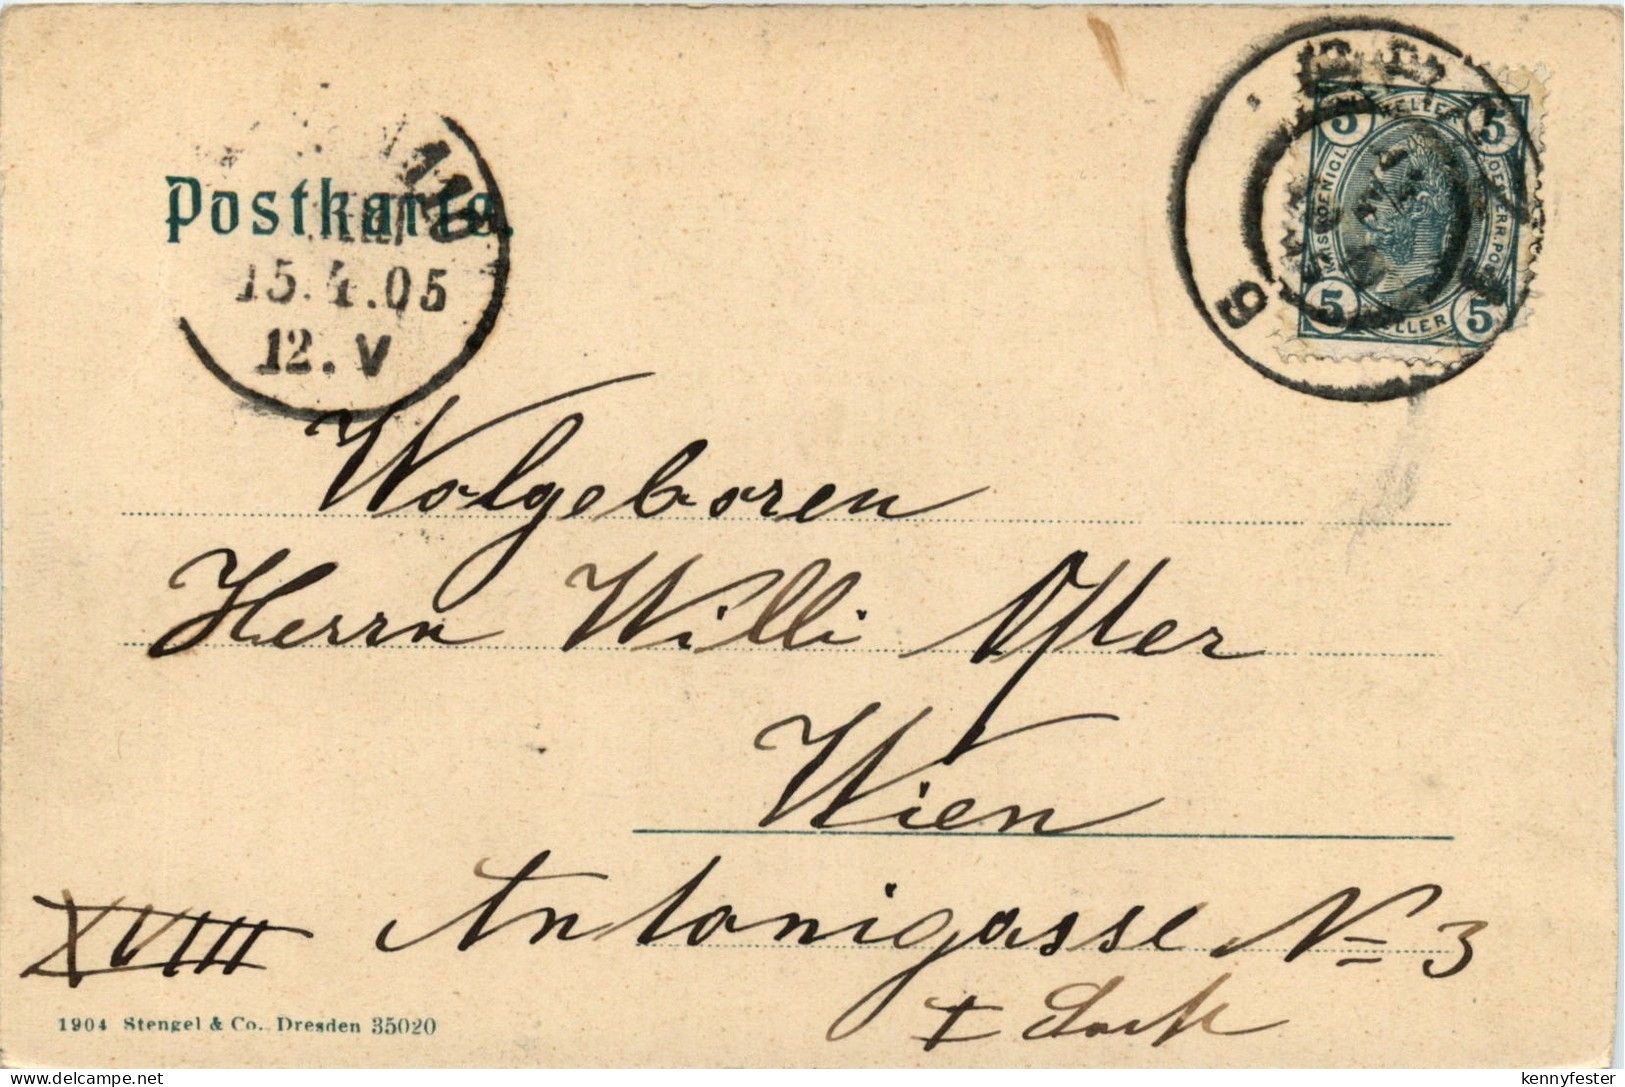 Postkarte.
110
WIEN
15.4.05
12.V
5 HELLER 5
KAIS. KOENIGL.
OESTERR. POST
5 HELLER 5
Wolgeboren
Herrn Willi
Wien
XVIII Antonigasse No 3
I
1904 Stengel & Co., Dresden 35020
kennyfester